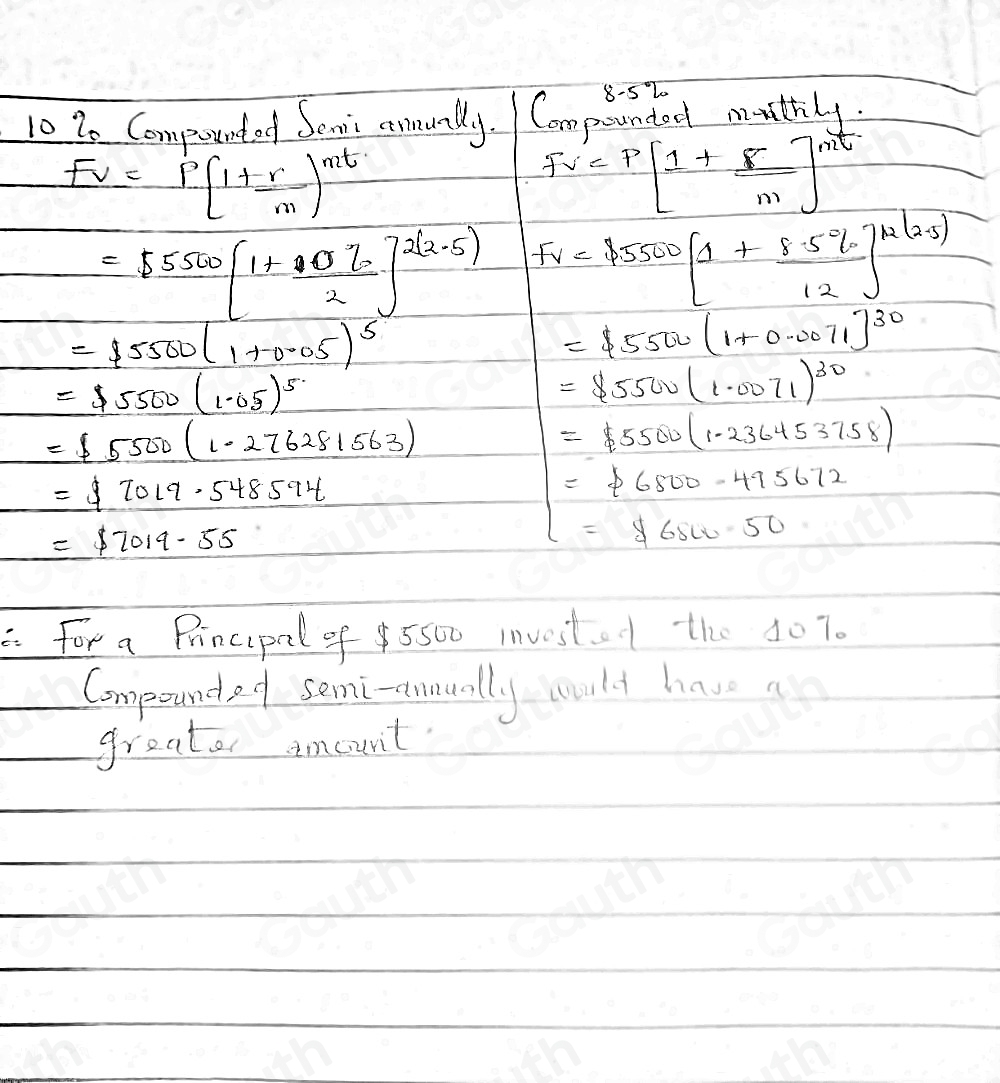 10 % Compounded Semi annually.
Fv = P[1+r/m)^mt
= $5500[1+10%/2]^2(2.5)
= $5500(1+0.05)^5
= $5500(1.05)^5
= $5500(1.276281563)
= $7019.548594
= $7019.55
8.5%
Compounded monthly.
Fv = P[1+r/m]^mt
Fv = $5500[1+8.5%/12]^12(2.5)
= $5500(1+0.0071]^30
= $5500(1.0071)^30
= $5500(1.236453758)
= $6800.495672
= $6800.50
∴ For a Principal of $5500 invested the 10%
Compounded semi-annually would have a
greater amount.
Gauth